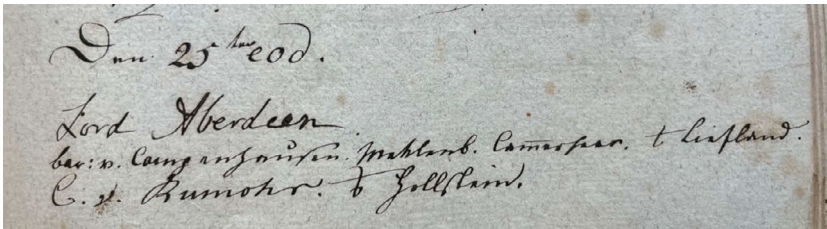 Den 25ten eod.
Lord Aberdeen
bar: v. Campenhausen. Meklenb. Cammerherr. Liefland.
C. v. Rumohr. Hollstein.